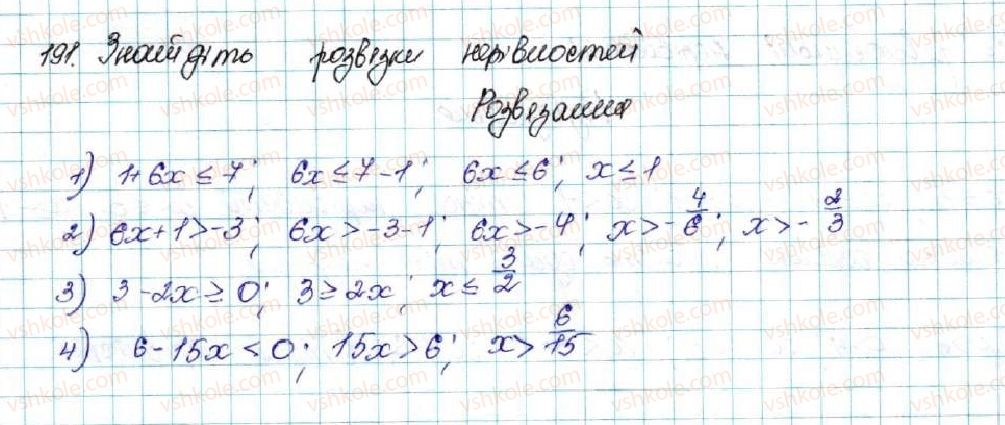 191. Знайдіть розвізки нерівностей
Розвязання
1) 1+6x ≤ 7; 6x ≤ 7-1; 6x ≤ 6; x ≤ 1
2) 6x+1 > -3; 6x > -3-1; 6x > -4; x > -4/6; x > -2/3
3) 3-2x ≥ 0; 3 ≥ 2x; x ≤ 3/2
4) 6-15x < 0; 15x > 6; x > 6/15